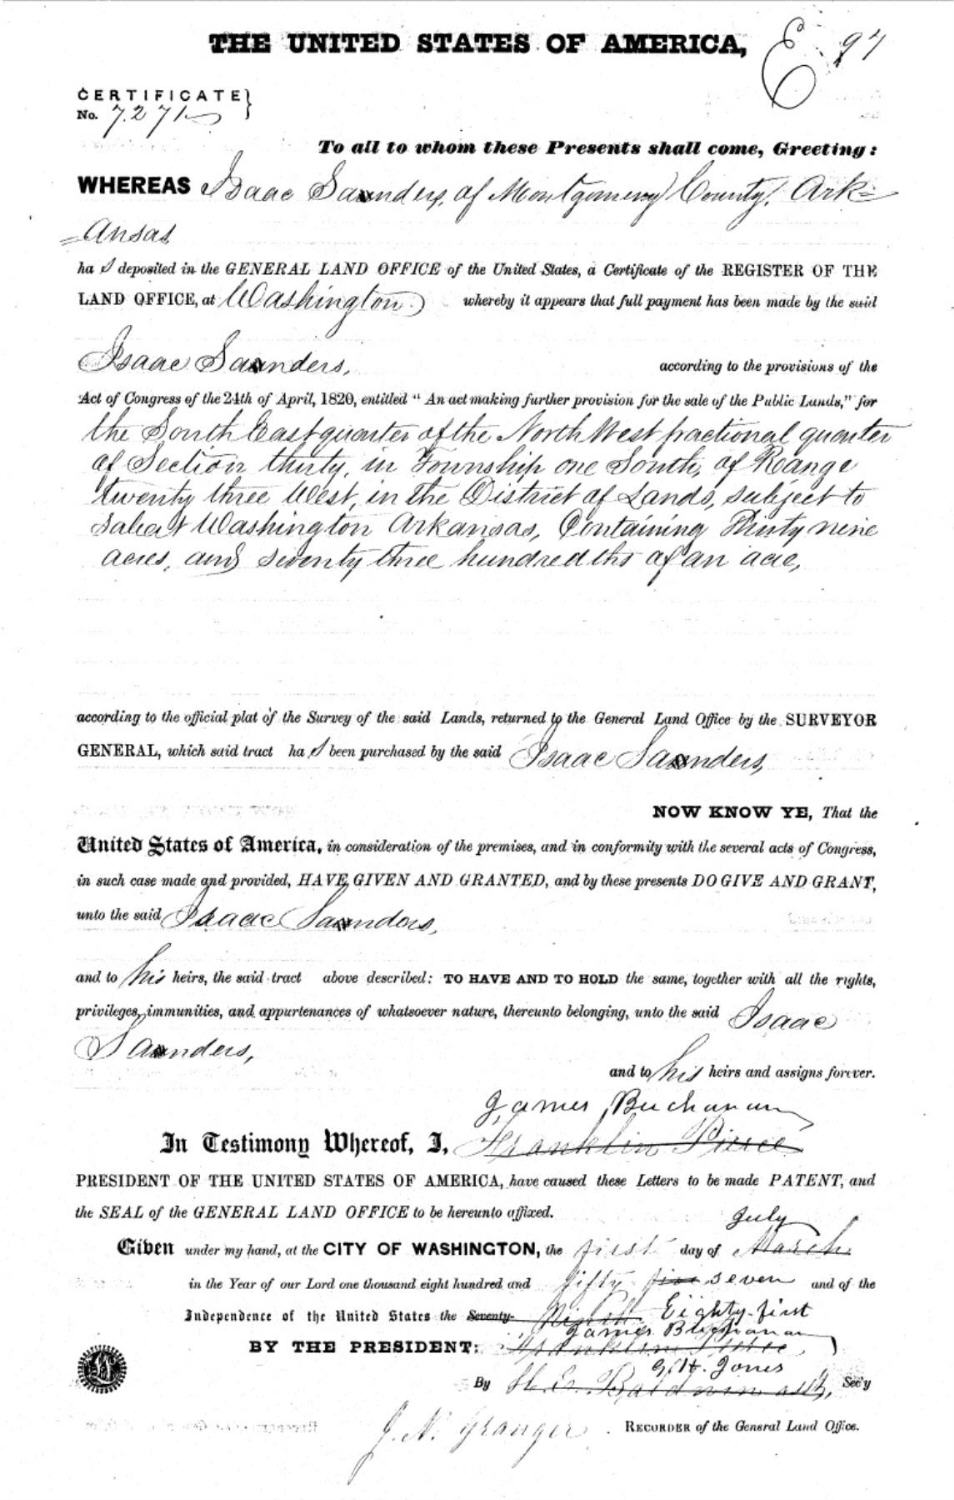 THE UNITED STATES OF AMERICA,
E 97
CERTIFICATE
No. 7271
To all to whom these Presents shall come, Greeting:
WHEREAS Isaac Saunders, of Montgomery County, Ark=
=ansas
ha s deposited in the GENERAL LAND OFFICE of the United States, a Certificate of the REGISTER OF THE
LAND OFFICE, at Washington whereby it appears that full payment has been made by the said
Isaac Saunders, according to the provisions of the
Act of Congress of the 24th of April, 1820, entitled "An act making further provision for the sale of the Public Lands," for
the South East quarter of the North West fractional quarter
of Section thirty, in Township one South, of Range
twenty three West, in the District of Lands, subject to
sale at Washington Arkansas, Containing Thirty nine
acres, and seventy three hundredths of an acre,
according to the official plat of the Survey of the said Lands, returned to the General Land Office by the SURVEYOR
GENERAL, which said tract ha s been purchased by the said Isaac Saunders,
NOW KNOW YE, That the
United States of America, in consideration of the premises, and in conformity with the several acts of Congress,
in such case made and provided, HAVE GIVEN AND GRANTED, and by these presents DO GIVE AND GRANT,
unto the said Isaac Saunders,
and to his heirs, the said tract above described: TO HAVE AND TO HOLD the same, together with all the rights,
privileges, immunities, and appurtenances of whatsoever nature, thereunto belonging, unto the said Isaac
Saunders,
and to his heirs and assigns forever.
James Buchanan
In Testimony Whereof, I, Franklin Pierce
PRESIDENT OF THE UNITED STATES OF AMERICA, have caused these Letters to be made PATENT, and
the SEAL of the GENERAL LAND OFFICE to be hereunto affixed.
July
Given under my hand, at the CITY OF WASHINGTON, the first day of March
in the Year of our Lord one thousand eight hundred and fifty five seven and of the
Independence of the United States the Seventy- Ninth Eighty-first
James Buchanan
BY THE PRESIDENT: Franklin Pierce
G. H. Jones
By H. E. Baldwin Sec'y
J. N. Granger RECORDER of the General Land Office.